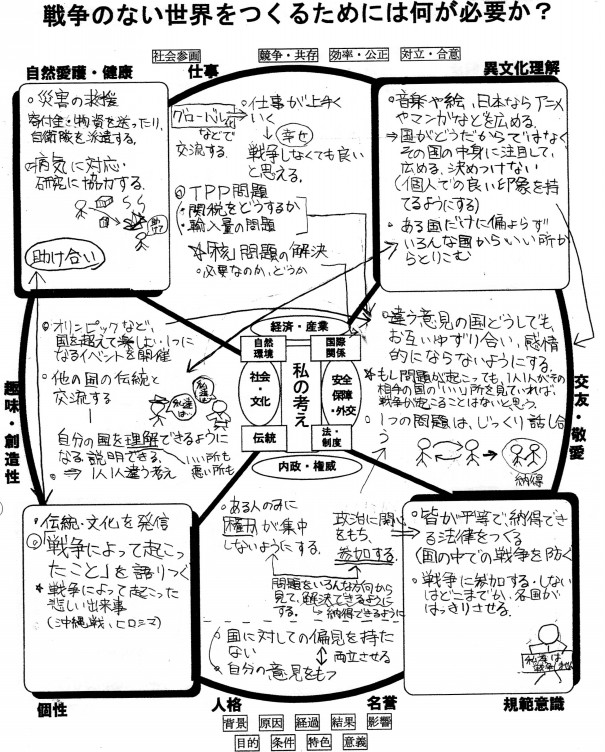 戦争のない世界をつくるためには何が必要か？
社会参画
競争・共存
効率・公正
対立・合意
自然愛護・健康
仕事
異文化理解
○災害の救援
寄付金・物資を送ったり、
自衛隊を派遣する。
病気に対応・
研究に協力する。
助け合い
○仕事が上手く
いく
グローバル化
などで
交流する。
幸せ
戦争しなくても良い
と思える。
TPP問題
・関税をどうするか
・輸入量の問題
「核」問題の解決
○必要なのか、どうか
○音楽や絵、日本ならアニメ
やマンガなどを広める。
⇒国がどうだからではなく
その国の中身に注目して、
広める、決めつけない
(個人での良い印象を持
てるようにする)
○ある国だけに偏よらず
いろんな国からいい所か
らとりこむ
○オリンピックなど、
国を超えて楽しい1つに
なるイベントを開催
○他の国の伝統と
交流する
自分の国を理解できるように
なる説明できる。
いい所も
悪い所も
⇒1人1人違う考え
経済・産業
自然
環境
国際
関係
社会
・
文化
私の考え
安全
保障
・外交
伝統
法・
制度
内政・権威
○違う意見の国どうしでも
お互いゆずり合い、感情
的にならないようにする。
もし問題が起こっても、1人1人がその
相手の国の「いい」所を見ていれば、
戦争が起こることはないと思う。
○1つの問題は、じっくり話し合
う
納得
趣味・創造性
交友・敬愛
○伝統・文化を発信
「戦争によって起こっ
たこと」を語りつぐ
戦争によって起こった
悲しい出来事
(沖縄戦、ヒロシマ)
○ある人のみに
権力が集中
しないようにする。
政治に関心
をもち、
参加する。
問題をいろんな方向から
見て、解決できるように
する。→納得できるように
○国に対しての偏見を持た
ない
両立させる
○自分の意見をもつ
○皆が平等で、納得でき
る法律をつくる
(国の中での戦争を防ぐ)
○戦争に参加する・しない
はどこまでか、各国が
はっきりさせる。
個性
人格
名誉
規範意識
背景
原因
経過
結果
影響
目的
条件
特色
意義